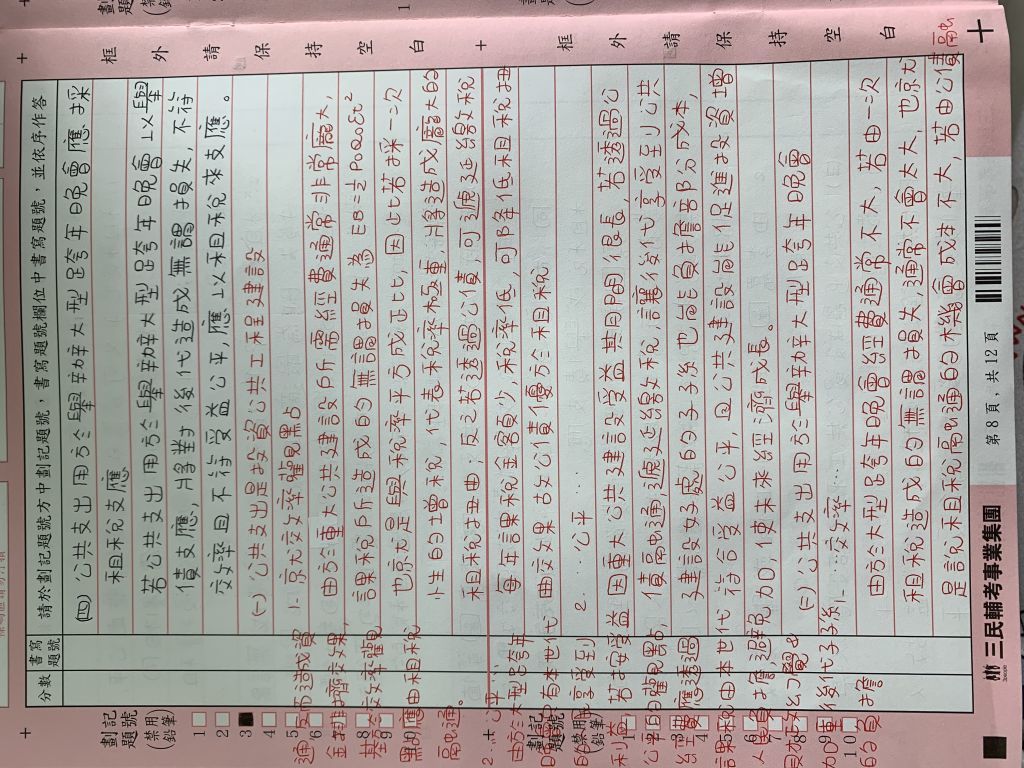 框外請保持空白
框外請保持空白
劃記題號
(禁用鉛筆)
分數
書寫題號
請於劃記題號方中劃記題號，書寫題號欄位中書寫題號，並依序作答
1
2
3
4
5
6
7
8
9
10
(四) 公共支出用於舉辦大型跨年晚會應採
租稅支應
若公共支出用於舉辦大型跨年晚會以舉
債支應，將對後代造成無謂損失，不符
效率且不符受益公平，應以租稅來支應。
(一) 公共支出是投資公共工程建設
1. 就效率觀點
由於重大公共建設所需經費通常非常龐大，
課稅所造成的無謂損失為 EB=½PoQoεt²
也就是與稅率平方成正比，因此若採一次
性的增稅，代表稅率極重，將造成龐大的
租稅扭曲；反之若透過公債，可遞延繳稅
每年課稅金額少，稅率低，可降低租稅扭
曲效果故公債優於租稅
2. ......公平
因重大公共建設受益其期間很長，若透過公
債融通，遞延繳稅，讓後代享受到公共
建設好處的子子孫也能負擔部分成本，
符合受益公平，且公共建設能促進投資增
加，使未來經濟成長。
(二) 公共支出用於舉辦大型跨年晚會
1. ......效率......
由於大型跨年晚會經費通常不大，若由一次
租稅造成的無謂損失，通常不會太大，也就
是說租稅融通的機會成本不大，若由公債融
通，反而造成資
金排擠效果，
基於效率觀
點，應由租稅
融通。
2. ......公平......
由於大型跨年
只有本世代
享受到
利益，若按受益
公平的觀點，
經費應透過
課稅由本世代
人負擔，避免
加重後代子孫
的負擔
第8頁，共12頁
三民輔考事業集團